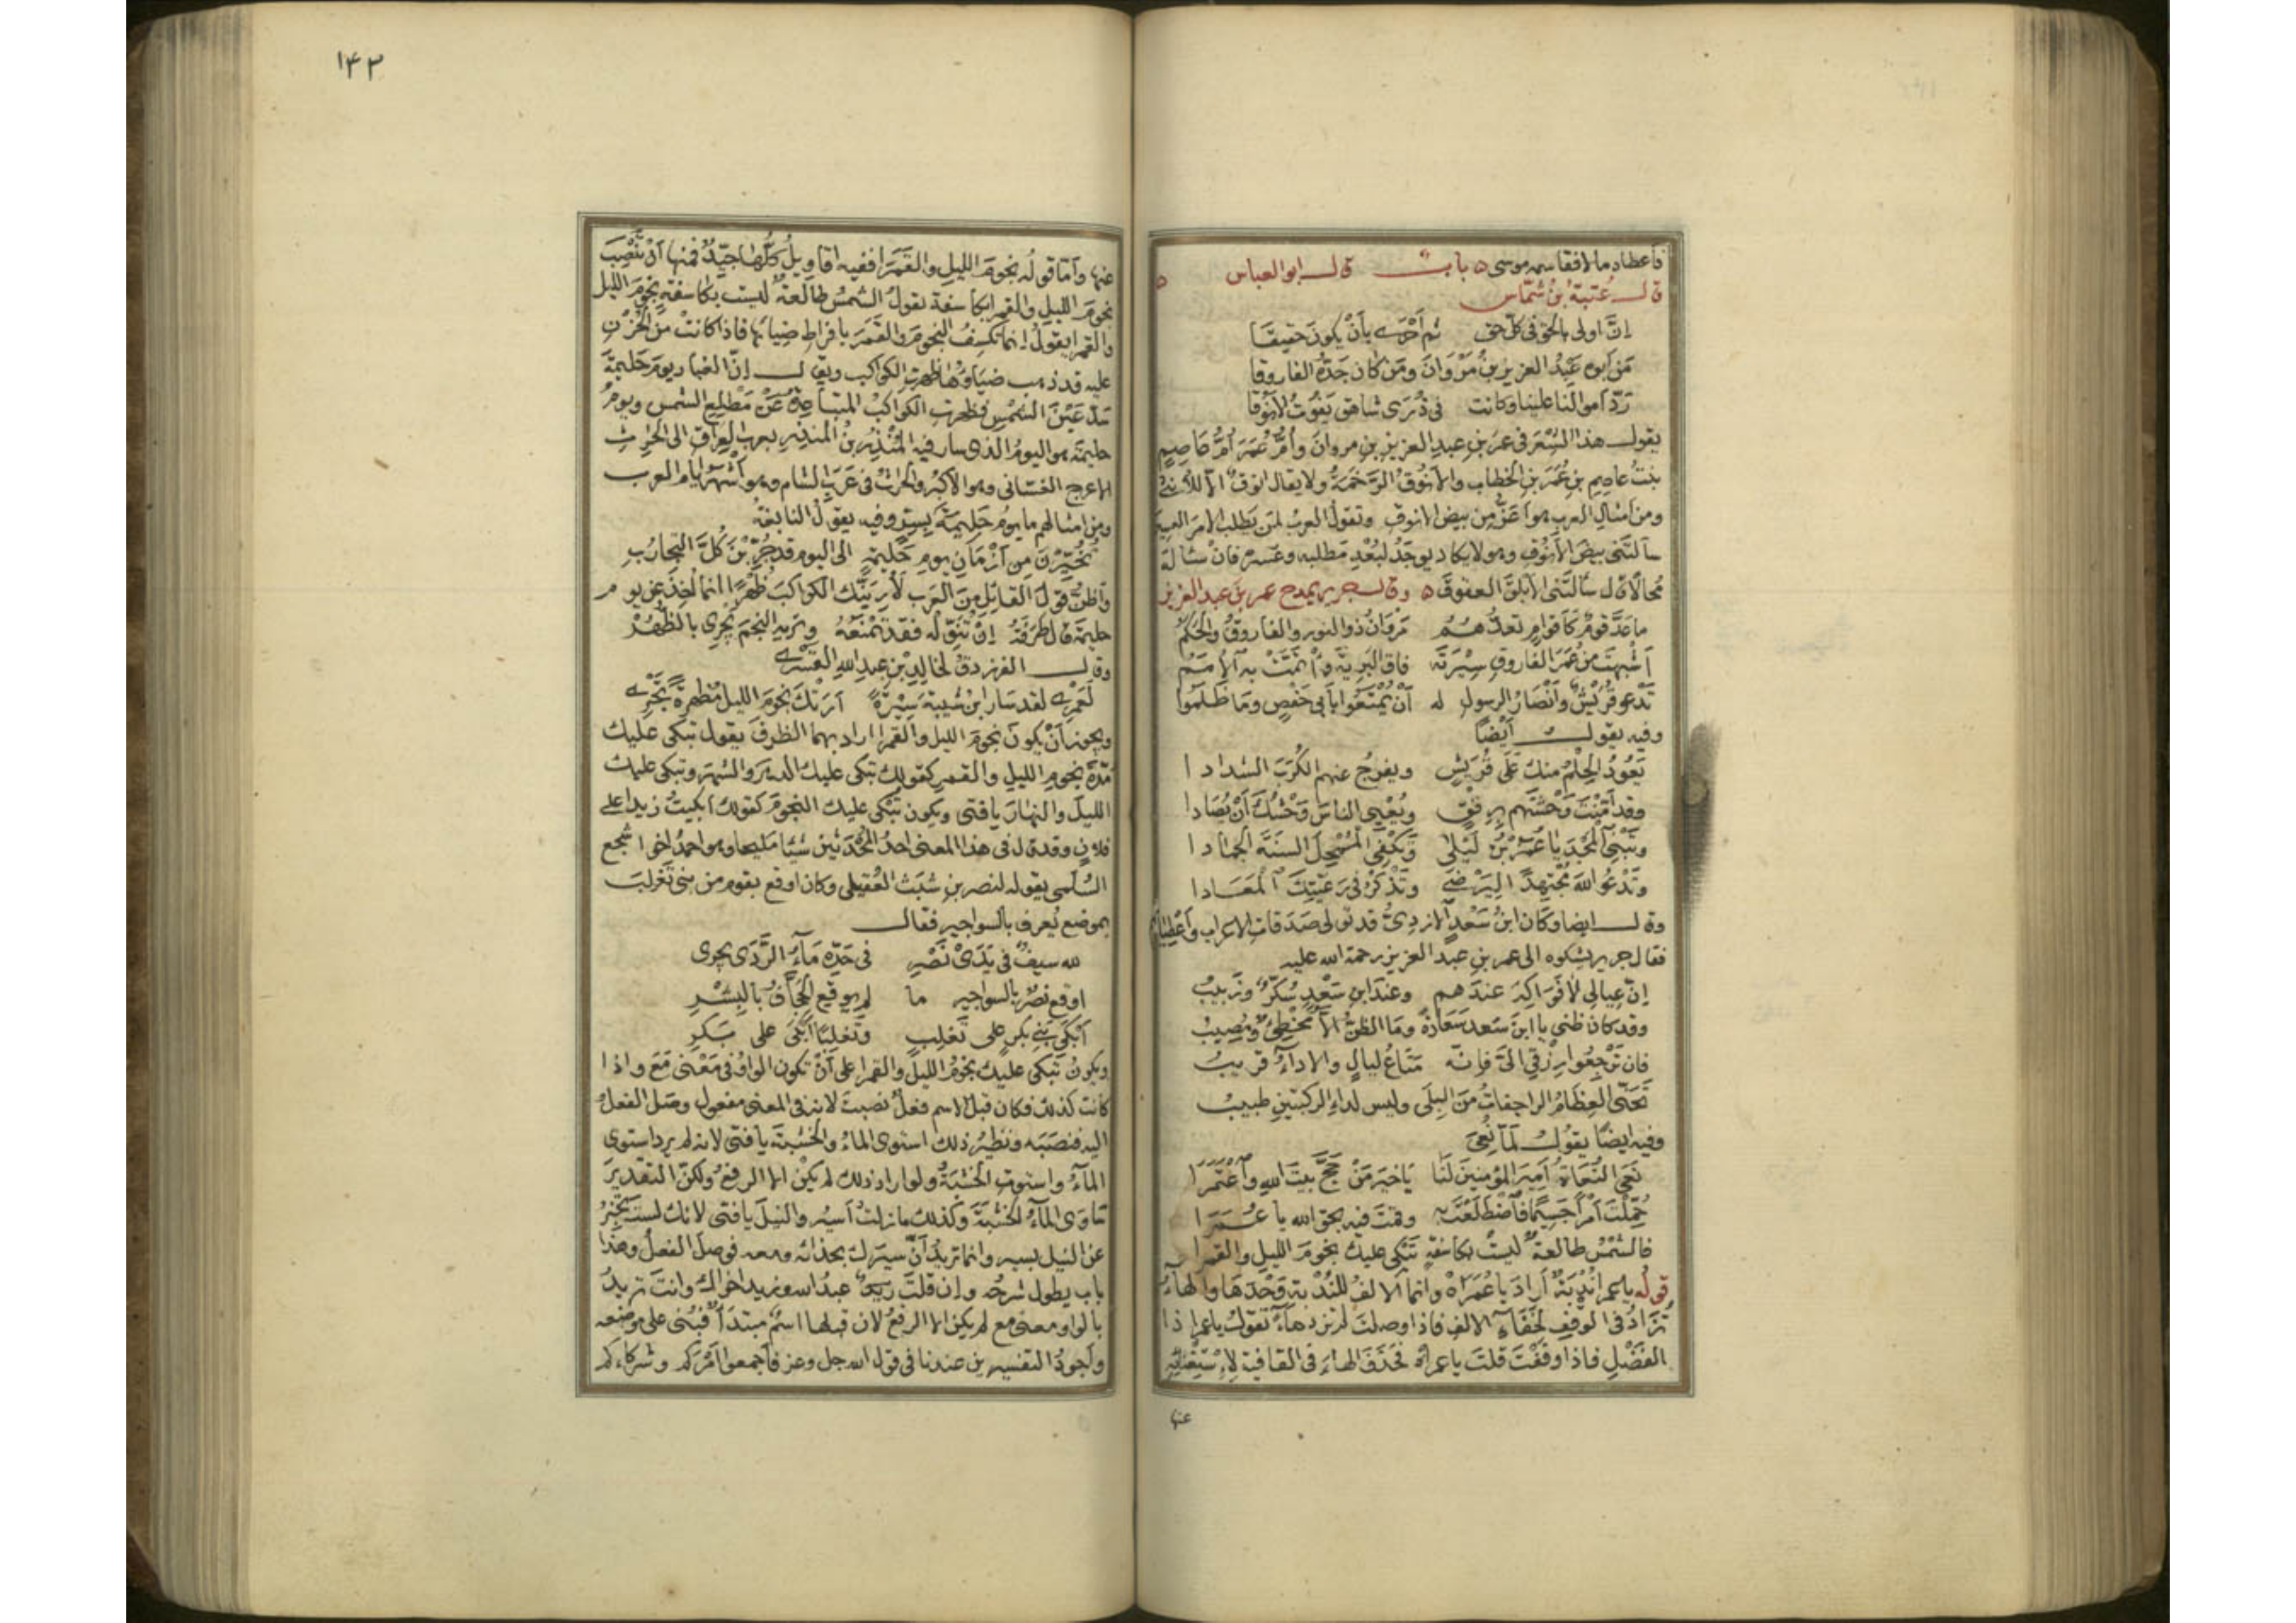 فأعطاه مالا فقاسمه موسى ه باب قال ابو العباس ه
قال عتبة ابن شمّاس
إنّ اولى بالحق في كلّ حق ثم أَحْرى بأَنْ يكونَ حقيقَا
مَن ابوه عَبْدُ العزيز بنُ مَرْوَانَ ومَن كان جَدُّهُ الفاروقا
رَدّ اموالنا علينا وكانت في ذُرَى شاهق يَفُوتُ الأَنُوقا
يقول هذا الشعر في عمر بن عبد العزيز بن مروان وأُمُّ عُمَرَ أُمُّ عَاصِمٍ
بنتُ عاصِمِ بنِ عُمَرَ بنِ الخطاب والأَنُوقُ الرَّخَمَةُ ولا يقال انوق الّا للأُنثى
ومن امثال العرب هو أعَزُّ مِن بيض الانوق وتقول العرب لمن يَطلب الامر العسير
سألتَني بيضَ الأَنُوقِ وهو لا يكاد يوجَدُ لبُعْدِ مَطلبه وعُسره فان سأله
مُحالا قال سَأَلتَني الأبلقَ العقوقَ ه وقال جرير يمدح عمر بنَ عبد العزيز
ما عَدَّ قومٌ كأقوامٍ تعدُّهُمُ مَروَانُ ذو النور والفاروقُ والحَكَمُ
أَشْبَهتَ من عُمَرَ الفاروقِ سِيْرَتَه فاقَ البَرِيّةَ وأْتَمَّتْ به الأُمَمُ
تَدْعو قُرَيْشٌ وأَنْصَارُ الرسولِ له أَنْ يُمْتَعُوا بأبي حَفْصٍ وما ظَلَمُوا
وفيه يقول أيْضًا
يَعُودُ الحِلْمُ منكَ عَلَى قُرَيْشٍ ويفرجُ عنهم الكُرَبَ الشدادا
وقد آمَنْتَ وَحْشَهم بِرِفْقٍ ويُعْيِى الناسَ وَحْشُكَ أَنْ يُصَادا
وتَبْنِي المَجْدَ يا عُمَرُ بْنَ لَيْلى وتَكْفِي المُمْحِلَ السَنَةَ الجمادا
وتَدْعُو اللهَ مُجْتَهِدًا لِيَرْضَى وتَذْكُرُ في رَعِيّتِكَ المَعَادا
وقال ايضا وكان ابنُ سَعْدٍ الازديُّ قد تولى صَدَقاتِ الاعراب وأعطياتهم
فقال جرير يشكوه الى عمر بن عبد العزيز رحمة الله عليه
إنّ عِيالي لا فَوَاكِهَ عندهم وعندَ ابنِ سَعْدٍ سُكَّرٌ وزَبيبُ
وقد كان ظني بابنِ سَعد سَعَادةً وما الظنُّ الّا مُخطِئٌ ومُصِيبُ
فان تَرْجِعُوا رِزْقي الىَّ فإنّه مَتَاعُ ليالٍ والاداءُ قريبُ
تَحَنّى العِظَامُ الراجفاتُ من البِلَى وليس لداءِ الركبتينِ طبيبُ
وفيه ايضًا يقول لمّا نُعِيَ
نَعَى النُّعَاةُ أَمِيرَ المؤمنينَ لَنَا يا خيرَ مَنْ حَجَّ بيتَ اللهِ واعْتَمَرَا
حُمِّلْتَ أَمْرًا جَسِيمًا فاضْطَلَعْتَ به وقمتَ فيه بحق الله يا عُمَرَا
فالشمْسُ طالعةٌ ليستْ بكاسفةٍ تَبْكى عليك نجومَ الليلِ والقمرا
قولُه يا عمرا نُدْبَةٌ أرادَ يا عُمَراهْ وانما الالفُ للنُدْبةِ وَحْدَهَا والهاءُ
تُزَادُ في الوَقفِ لِخَفَاءِ الالف فاذا وصلت لم تزدها تقول يا عمرا ذا
الفَضْلِ فاذا وقَفْتَ قلتَ يا عمراهْ فحَذَفَ الهاءَ في القافيةِ لاستغنائه
عنها
١٤٢
عنها وأمّا قولُه نجومَ الليلِ والقَمَرَا ففيه اقاويلُ كلُّها جَيّدٌ فمنها أَنْ تَنْصِبَ
نجومَ الليلِ والقمرا بكاسفة يقولُ الشمسُ طالعةٌ ليست بكاسفةٍ نجومَ الليل
والقمرا يقولُ إنما تَكسِفُ النجومَ والقَمَرَ بافراط ضيائها فاذا كانت من الحُزْنِ
عليه قد ذهب ضياؤها ظهرت الكواكب ويقال إنّ الغبار يومَ حَليمَةَ
سَدَّ عَيْنَ الشمْسِ فظهرت الكواكبُ المتباعِدةُ عَنْ مَطْلِعِ الشمس ويومُ
حليمَةَ هو اليومُ الذي سار فيه المُنْذِرُ بنُ المنذِرِ بعرب العِرَاقِ الى الحرث
الاعرج الغسّانى وهو الاكبرُ والحرثُ في عَرَبِ الشام وهو أشهر ايام العرب
ومن امثالهم ما يومُ حَلِيمَةَ بِسِرٍّ وفيه يقول النابغةُ
تُخُيِّرْنَ مِن أَزْمَانِ يومِ حَليمةٍ الى اليوم قد جُرِّبْنَ كُلَّ التجارُبِ
وأَظنُّ قولَ القائلِ مِنَ العَرَب لأُرِيَنَّك الكواكبَ ظُهْرًا انما أُخِذَ مِن يوم
حليمَةَ قال طَرَفَةُ إِنْ تُنَوِّلْهُ فقد تَمْنَعُهُ وتريه النجمَ يَجْرِى بالظُهُرْ
وقال الفرزدقُ لخالدِ بنِ عبدِ اللهِ القَسْرى
لَعَمْرى لقد سَارَ ابنُ شَيبةَ سِيْرَةً أَرَتْكَ نجومَ الليل مُظهرةً تَجْرى
ويجوز أَنْ يكونَ نجومَ الليل والقمرا اراد بهما الظرفَ يقول تبكى عليك
مُدَّةَ نجومِ الليلِ والقمرِ كقولك تبكى عليك الدهرَ والشهرَ وتبكى عليك
الليلَ والنهارَ يا فتى ويكون تُبْكى عليك النجومَ كقولك ابكيتُ زيدا على
فلانٍ وقد قال في هذا المعنى احدُ المُحْدَثين شيئا مليحا وهو احمدُ اخو اشجع
السُلَمى يقوله لنصر بنِ شَبَث العُقَيلى وكان اوقع بقوم من بني تَغْلِبَ
بموضع يُعرف بالسواجير فقال
لله سيفٌ في يَدَىْ نَصْرِ في حَدِّه مَاءُ الرَّدَى يجرى
اوقع نصرٌ بالسواجير ما لم يوقعِ الجَحّافُ بالبِشْرِ
أبْكَى بَنِى بكرٍ على تَغلِبٍ وتَغلِبًا أَبْكَى على بَكرِ
ويكونُ تَبكى عليك نجومُ الليل والقمرا على أَنْ تكون الواوُ في مَعْنى مَعَ واذا
كانت كذلك فكان قبل الاسم فِعلٌ نصبتَ لانه في المعنى مفعول وصَلَ الفعلُ
اليه فنصَبَه ونظيرُ ذلك استوى الماءُ والخشبةَ يا فتى لانه لم يرد استوى
الماءُ واستوت الخشبةُ ولو اراد ذلك لم يكن الا الرفعُ ولكنّ التقديرَ
ساوى الماءُ الخشبةَ وكذلك ما زلتُ أسيرُ والنيلَ يا فتى لانك لستَ تُخبِرُ
عن النيل بسير وانما تريدُ أنّ سيرك بحذائه ومعه فوصلَ الفعلُ وهذا
باب يطول شرحُه وان قلتَ عبدُ الله وزيد اخواك وانتَ تريدُ
بالواو معنى مع لم يكن الا الرفعُ لان قبلها اسمٌ مبتدأٌ فبُنى على موضعه
وأجودُ التفسيرين عندنا في قول الله جل وعز فأجمعوا أمْرَكم وشركاءكم